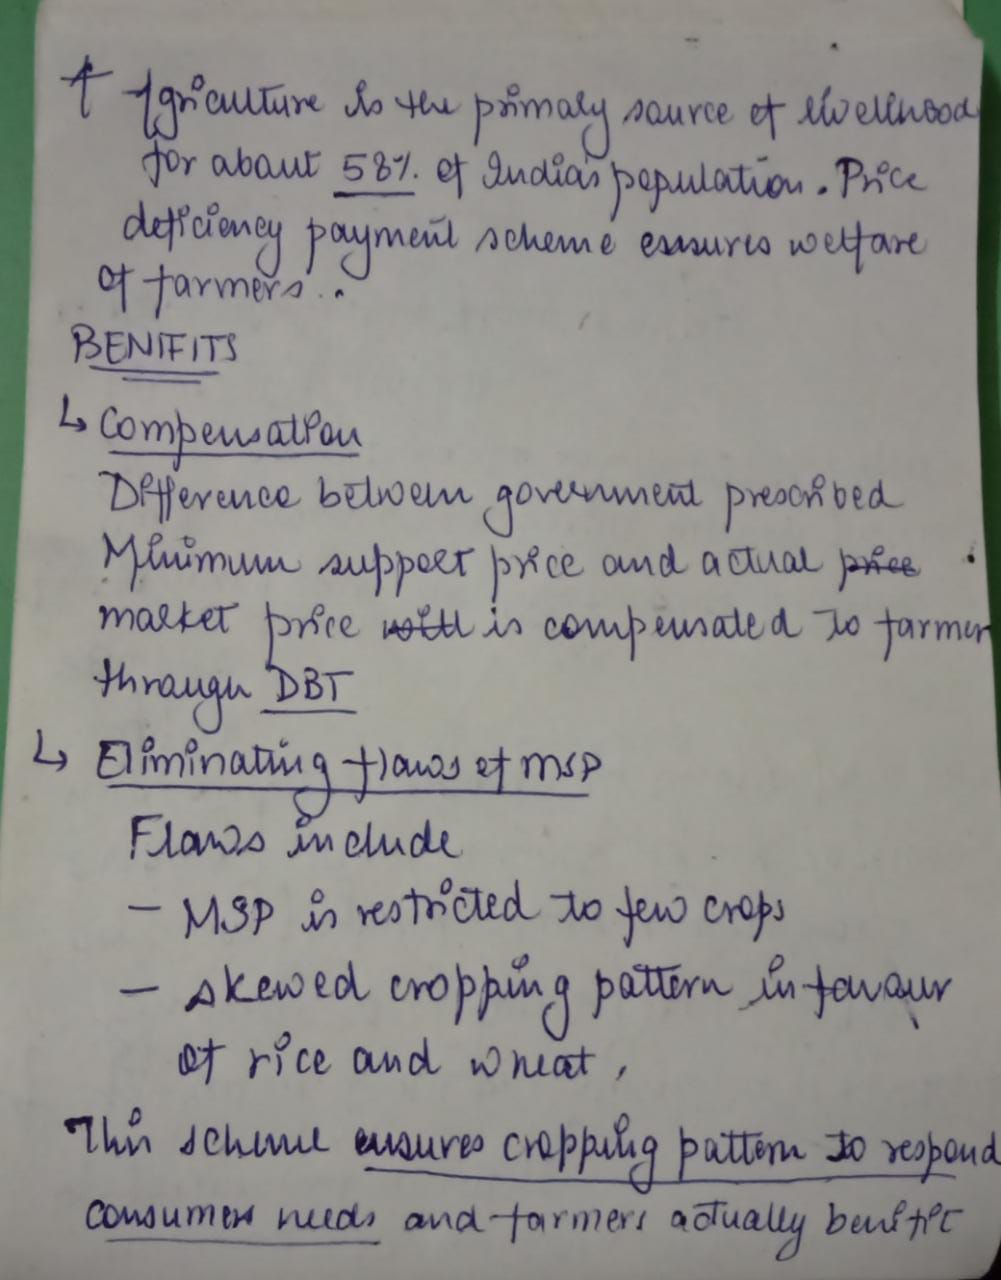 Agriculture is the primary source of livelihood
for about 58% of India's population. Price
deficiency payment scheme ensures welfare
of farmers.
BENIFITS
↳ Compensation
Difference between government prescribed
Minimum support price and actual price
market price will is compensated to farmer
through DBT
↳ Eliminating flaws of MSP
Flaws include
- MSP is restricted to few crops
- skewed cropping pattern in favour
of rice and wheat,
This scheme ensures cropping pattern to respond
consumers needs and farmers actually benefit